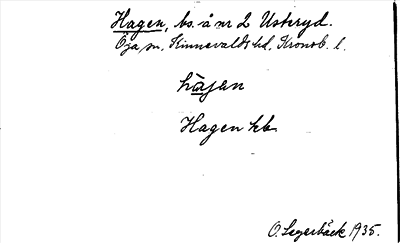 Hagen, bs. å nr 2 Usteryd.
Öja sn, Kinnevalds hd, Kronob. l.
hàjan
Hagen kb
O. Legerbäck 1935.